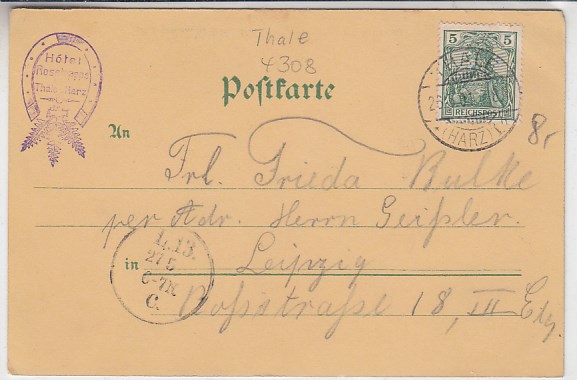 Thale
4308
Hôtel
Rosstrappe
Thale Harz
Postkarte
5
REICHSPOST
THALE
(HARZ)
8,-
An
Frl. Frieda Bulke
per Adr. Herrn Geißler.
in Leipzig
Roßstraße 18, III Etg.
L. 13.
27 5
6-7N
C.